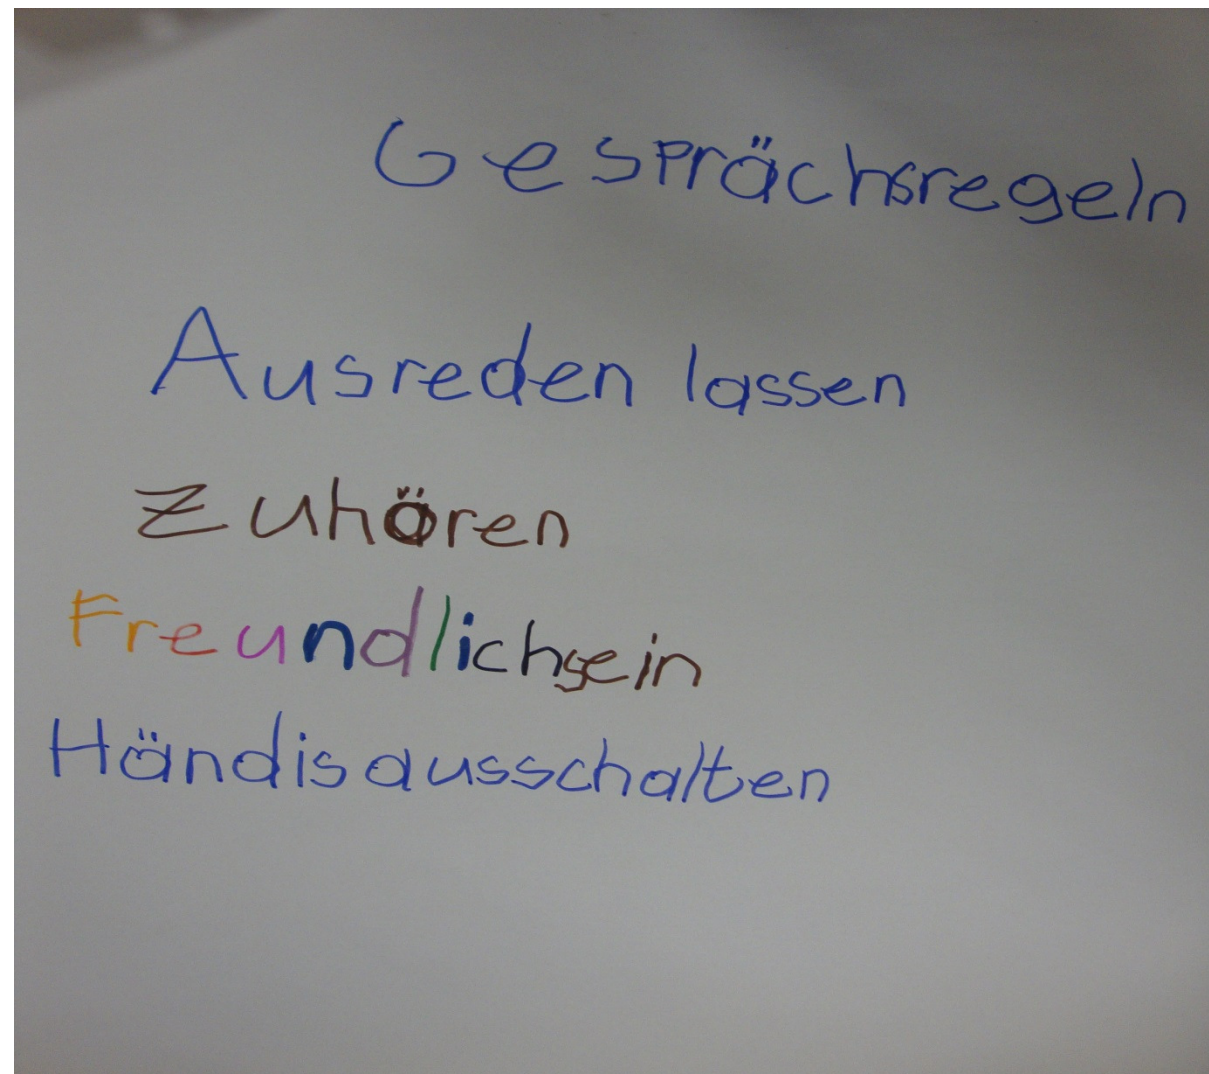 Gesprächsregeln
Ausreden lassen
Zuhören
Freundlichsein
Händisausschalten